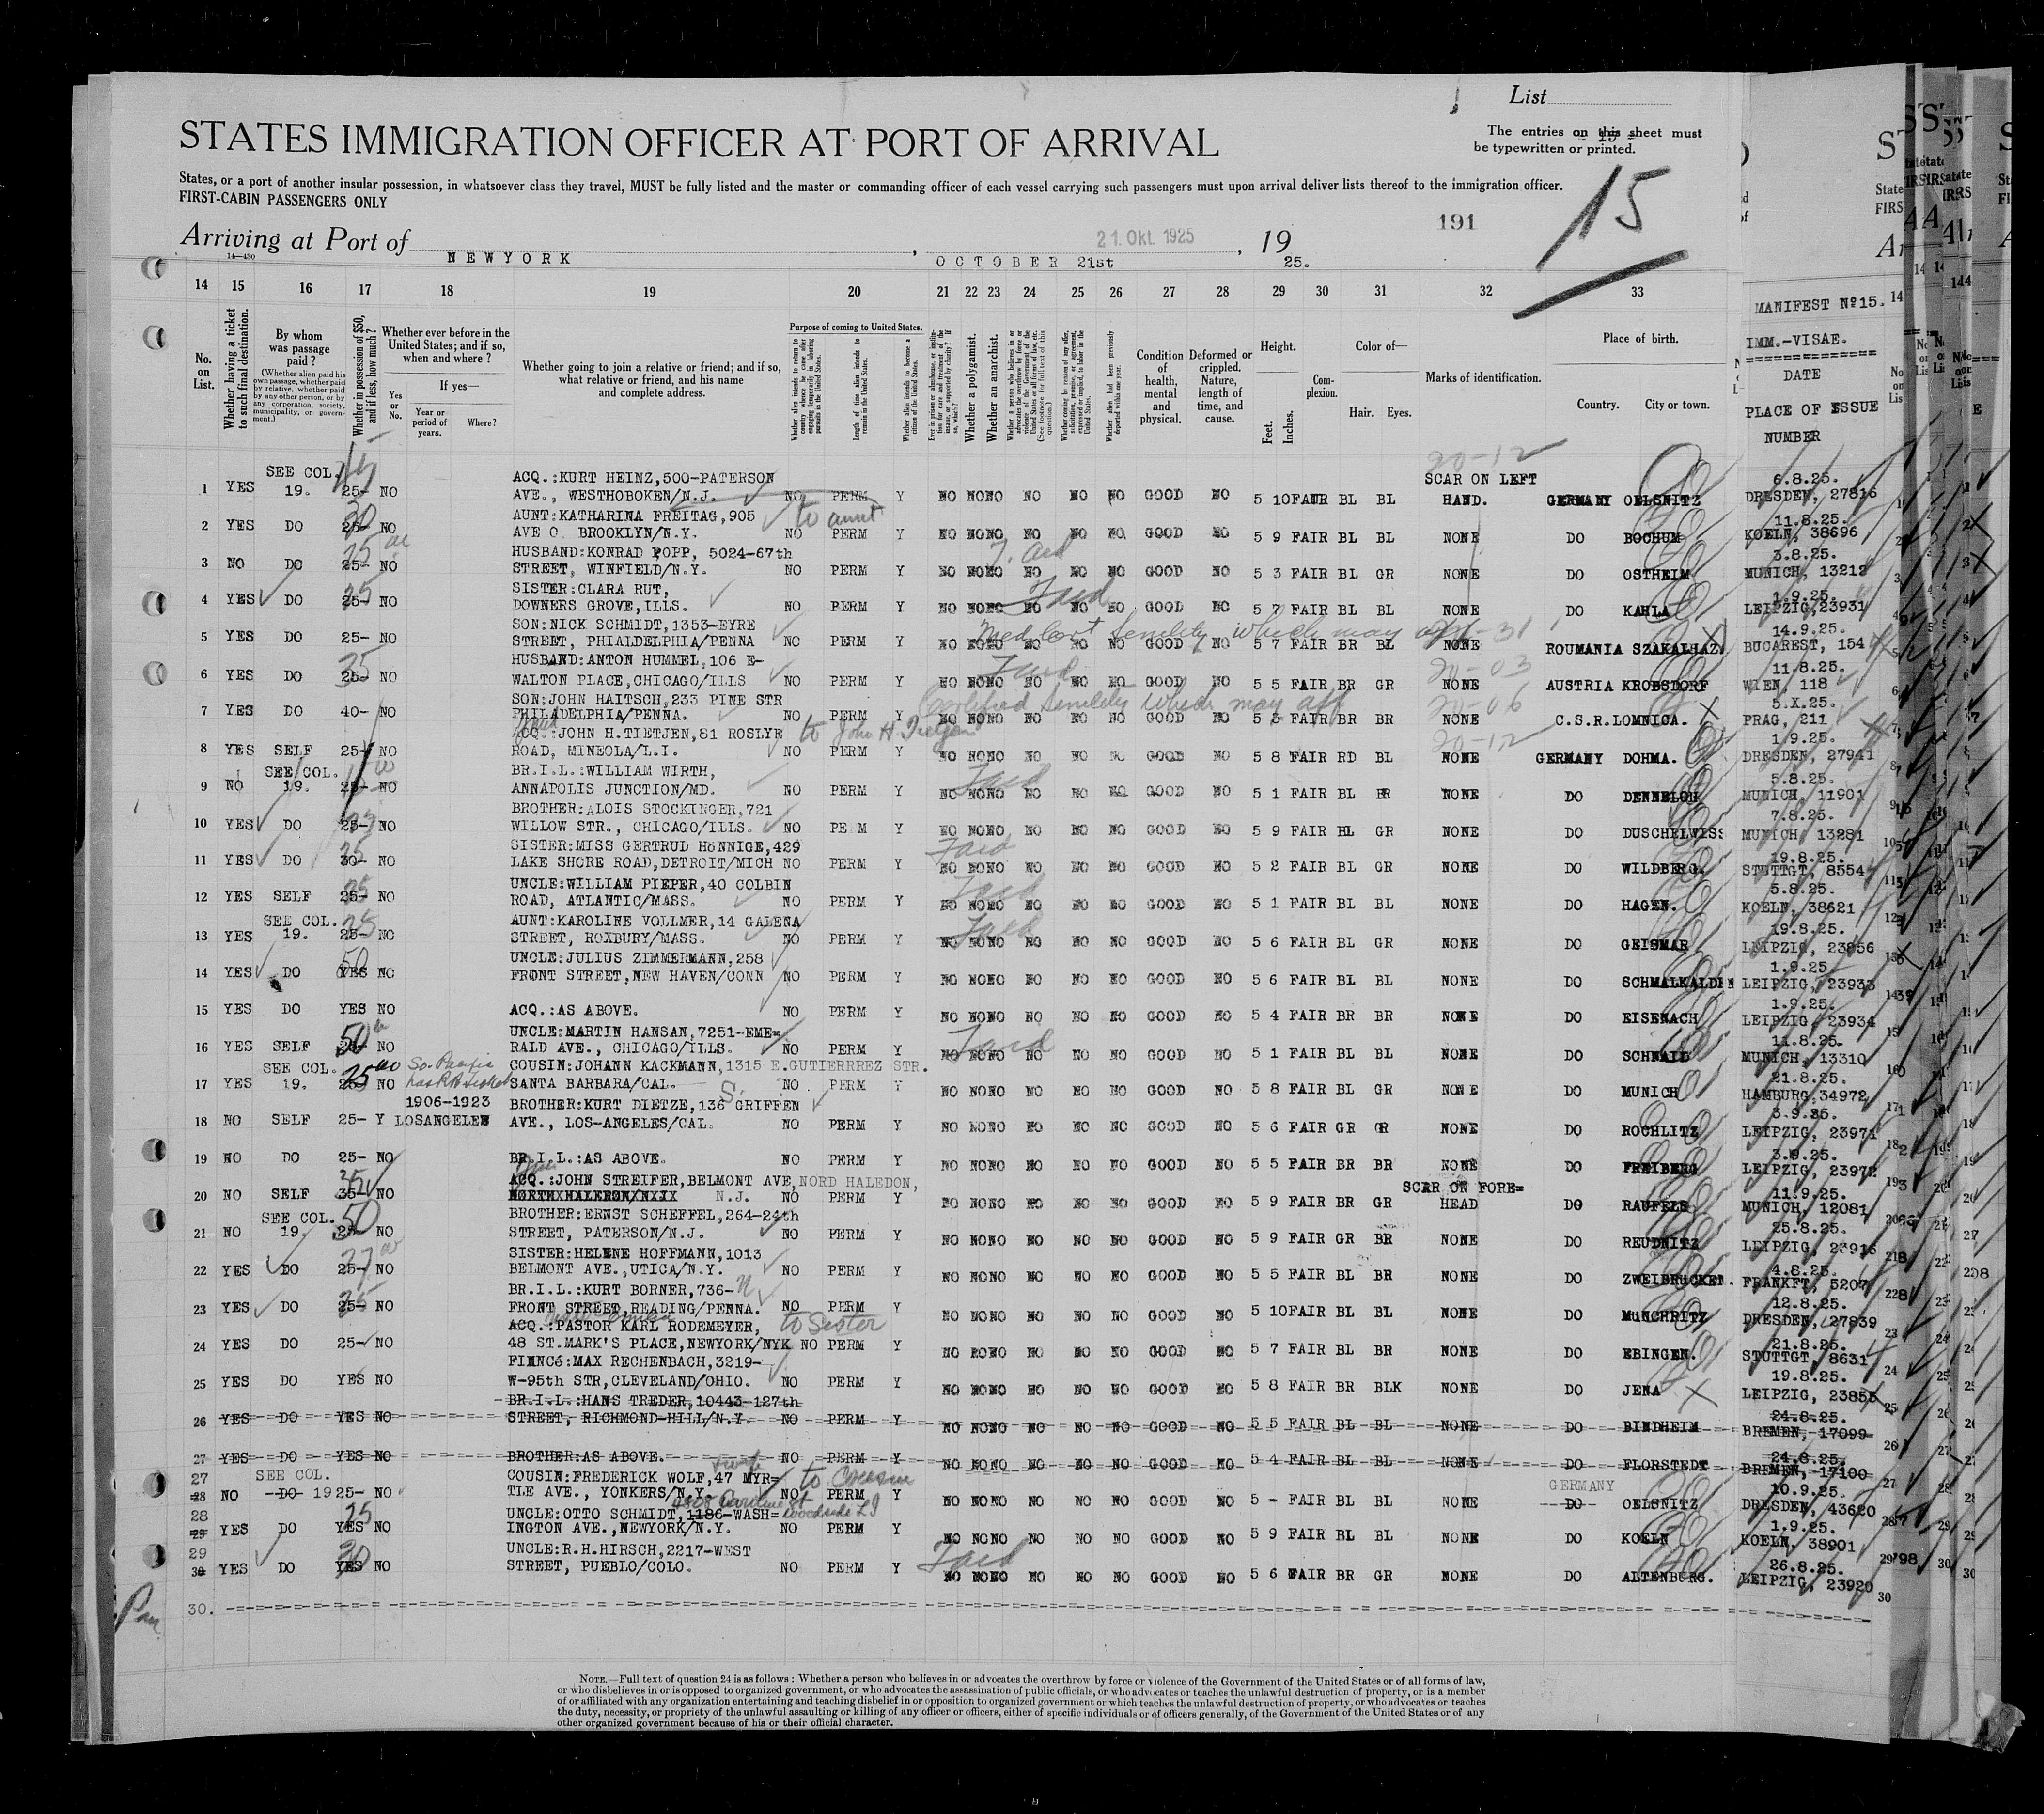 List
STATES IMMIGRATION OFFICER AT PORT OF ARRIVAL
The entries on this sheet must
be typewritten or printed.
15
States, or a port of another insular possession, in whatsoever class they travel, MUST be fully listed and the master or commanding officer of each vessel carrying such passengers must upon arrival deliver lists thereof to the immigration officer.
FIRST-CABIN PASSENGERS ONLY
191
Arriving at Port of NEWYORK, OCTOBER 21st, 1925.
21. Okt. 1925
14—430
14 15 16 17 18 19 20 21 22 23 24 25 26 27 28 29 30 31 32 33
No. on List.
Whether having a ticket to such final destination.
By whom was passage paid?
(Whether alien paid his own passage, whether paid by relative, whether paid by any other person, or by any corporation, society, municipality, or government.)
Whether in possession of $50, and if less, how much?
Whether ever before in the United States; and if so, when and where?
Yes or No.
If yes—
Year or period of years.
Where?
Whether going to join a relative or friend; and if so, what relative or friend, and his name and complete address.
Purpose of coming to United States.
Whether a polygamist.
Whether an anarchist.
Condition of health, mental and physical.
Deformed or crippled. Nature, length of time, and cause.
Height.
Feet. Inches.
Complexion.
Color of—
Hair. Eyes.
Marks of identification.
Place of birth.
Country. City or town.
MANIFEST Nº15.
IMM.-VISAE.
DATE
PLACE OF ISSUE
NUMBER
SEE COL. ACQ.:KURT HEINZ,500-PATERSON SCAR ON LEFT 6.8.25.
1 YES 19. 25- NO AVE., WESTHOBOKEN/N.J. NO PERM Y NO NO NO NO NO NO GOOD NO 5 10 FAIR BL BL HAND. GERMANY OELSNITZ DRESDEN, 27816
AUNT:KATHARINA FREITAG,905 to aunt 11.8.25.
2 YES DO 25- NO AVE O. BROOKLYN/N.Y. NO PERM Y NO NO NO NO NO NO GOOD NO 5 9 FAIR BL BL NONE DO BOCHUM KOELN, 38696
HUSBAND:KONRAD POPP, 5024-67th 3.8.25.
3 NO DO 25- NO STREET, WINFIELD/N.Y. NO PERM Y NO NO NO NO NO NO GOOD NO 5 3 FAIR BL GR NONE DO OSTHEIM MUNICH, 13212
SISTER:CLARA RUT, 1.9.25.
4 YES DO 25- NO DOWNERS GROVE,ILLS. NO PERM Y NO NO NO NO NO NO GOOD NO 5 7 FAIR BL BL NONE DO KAHLA LEIPZIG,23931
SON:NICK SCHMIDT,1353-EYRE 14.9.25.
5 YES DO 25- NO STREET, PHIALDELPHIA/PENNA NO PERM Y NO NO NO NO NO NO GOOD NO 5 7 FAIR BR BL NONE ROUMANIA SZAKALHAZ. BUCAREST, 154
HUSBAND:ANTON HUMMEL,106 E- 11.8.25.
6 YES DO 25- NO WALTON PLACE,CHICAGO/ILLS NO PERM Y NO NO NO NO NO NO GOOD NO 5 5 FAIR BR GR NONE AUSTRIA KROBSDORF WIEN, 118
SON:JOHN HAITSCH,233 PINE STR Certified senility which may aff 5.X.25.
7 YES DO 40- NO PHILADELPHIA/PENNA. NO PERM Y NO NO NO NO NO NO GOOD NO 5 3 FAIR BR BR NONE C.S.R.LOMNICA. PRAG, 211
ACQ.:JOHN H.TIETJEN,81 ROSLYE to John H. Tietjen 1.9.25.
8 YES SELF 25- NO ROAD, MINEOLA/L.I. NO PERM Y NO NO NO NO NO NO GOOD NO 5 8 FAIR RD BL NONE GERMANY DOHMA. DRESDEN, 27941
SEE COL. BR.I.L.:WILLIAM WIRTH, 5.8.25.
9 NO 19. 25- NO ANNAPOLIS JUNCTION/MD. NO PERM Y NO NO NO NO NO NO GOOD NO 5 1 FAIR BL BR NONE DO DENNELOH MUNICH, 11901
BROTHER:ALOIS STOCKINGER,721 7.8.25.
10 YES DO 25- NO WILLOW STR., CHICAGO/ILLS. NO PERM Y NO NO NO NO NO NO GOOD NO 5 9 FAIR BL GR NONE DO DUSCHELWISS MUNICH, 13281
SISTER:MISS GERTRUD HöNNIGE,429 19.8.25.
11 YES DO 30- NO LAKE SHORE ROAD,DETROIT/MICH NO PERM Y NO NO NO NO NO NO GOOD NO 5 2 FAIR BL GR NONE DO WILDBERG. STUTTGT, 8554
UNCLE:WILLIAM PIEPER,40 COLBIN 5.8.25.
12 YES SELF 25- NO ROAD, ATLANTIC/MASS. NO PERM Y NO NO NO NO NO NO GOOD NO 5 1 FAIR BL BL NONE DO HAGEN. KOELN, 38621
SEE COL. AUNT:KAROLINE VOLLMER,14 GALENA 19.8.25.
13 YES 19. 25- NO STREET, ROXBURY/MASS. NO PERM Y NO NO NO NO NO NO GOOD NO 5 6 FAIR BL GR NONE DO GEISMAR LEIPZIG, 23856
UNCLE:JULIUS ZIMMERMANN,258 1.9.25.
14 YES DO YES NO FRONT STREET,NEW HAVEN/CONN NO PERM Y NO NO NO NO NO NO GOOD NO 5 6 FAIR BL BL NONE DO SCHMALKALDEN LEIPZIG, 23933
1.9.25.
15 YES DO YES NO ACQ.:AS ABOVE. NO PERM Y NO NO NO NO NO NO GOOD NO 5 4 FAIR BR BR NONE DO EISENACH LEIPZIG, 23934
UNCLE:MARTIN HANSAN,7251-EME= 11.8.25.
16 YES SELF 50 NO RALD AVE., CHICAGO/ILLS. NO PERM Y NO NO NO NO NO NO GOOD NO 5 1 FAIR BL BL NONE DO SCHNAID MUNICH, 13310
SEE COL. So. Pacific COUSIN:JOHANN KACKMANN,1315 E.GUTIERRREZ STR. 21.8.25.
17 YES 19. 25 NO has RR ticket SANTA BARBARA/CAL. NO PERM Y NO NO NO NO NO NO GOOD NO 5 8 FAIR BL GR NONE DO MUNICH HAMBURG,34972
1906-1923 BROTHER:KURT DIETZE,136 S. GRIFFEN 3.9.25.
18 NO SELF 25- Y LOSANGELEW AVE., LOS-ANGELES/CAL. NO PERM Y NO NO NO NO NO NO GOOD NO 5 6 FAIR GR GR NONE DO ROCHLITZ LEIPZIG, 23971
3.9.25.
19 NO DO 25- NO BR.I.L.:AS ABOVE. NO PERM Y NO NO NO NO NO NO GOOD NO 5 5 FAIR BR BR NONE DO FREIBERG LEIPZIG, 23972
ACQ.:JOHN STREIFER,BELMONT AVE,NORD HALEDON, SCAR ON FORE= 11.9.25.
20 NO SELF 35- NO N.J. NO PERM Y NO NO NO NO NO NO GOOD NO 5 9 FAIR BR GR HEAD DO RAUFELD MUNICH, 12081
SEE COL. 50 BROTHER:ERNST SCHEFFEL,264-24th 25.8.25.
21 NO 19. 25- NO STREET, PATERSON/N.J. NO PERM Y NO NO NO NO NO NO GOOD NO 5 9 FAIR GR BR NONE DO REUDNITZ LEIPZIG, 23916
SISTER:HELENE HOFFMANN,1013 4.8.25.
22 YES DO 25- NO BELMONT AVE.,UTICA/N.Y. NO PERM Y NO NO NO NO NO NO GOOD NO 5 5 FAIR BL BR NONE DO ZWEIBRUCKEN. FRANKFT, 5207
BR.I.L.:KURT BORNER,736- N 12.8.25.
23 YES DO 25- NO FRONT STREET,READING/PENNA. NO PERM Y NO NO NO NO NO NO GOOD NO 5 10 FAIR BL BL NONE DO MüNCHRITZ DRESDEN, 27839
ACQ.:PASTOR KARL RODEMEYER, to Sister 21.8.25.
24 YES DO 25- NO 48 ST.MARK'S PLACE,NEWYORK/NYK NO PERM Y NO NO NO NO NO NO GOOD NO 5 7 FAIR BL BR NONE DO EBINGEN. STUTTGT, 8631
FIANCé:MAX RECHENBACH,3219- 19.8.25.
25 YES DO YES NO W-95th STR,CLEVELAND/OHIO. NO PERM Y NO NO NO NO NO NO GOOD NO 5 8 FAIR BR BLK NONE DO JENA LEIPZIG, 23855
BR.I.L.:HANS TREDER,10443-127th 24.8.25.
26 YES DO YES NO STREET, RICHMOND-HILL/N.Y. NO PERM Y NO NO NO NO NO NO GOOD NO 5 5 FAIR BL BL NONE DO BINDHEIM BREMEN, 17099
24.8.25.
27 YES DO YES NO BROTHER:AS ABOVE. NO PERM Y NO NO NO NO NO NO GOOD NO 5 4 FAIR BL BL NONE DO FLORSTEDT BREMEN, 17100
27 SEE COL. COUSIN:FREDERICK WOLF,47 MYR= to Cousin GERMANY 10.9.25.
28 NO DO 19 25- NO TLE AVE., YONKERS/N.Y. NO PERM Y NO NO NO NO NO NO GOOD NO 5 - FAIR BL BL NONE DO OELSNITZ DRESDEN, 43620
28 UNCLE:OTTO SCHMIDT,1186-WASH= Woodside LI 1.9.25.
29 YES DO YES NO INGTON AVE.,NEWYORK/N.Y. NO PERM Y NO NO NO NO NO NO GOOD NO 5 9 FAIR BL BL NONE DO KOELN KOELN, 38901
29 UNCLE:R.H.HIRSCH,2217-WEST 26.8.25.
30 YES DO YES NO STREET, PUEBLO/COLO. NO PERM Y NO NO NO NO NO NO GOOD NO 5 6 FAIR BR GR NONE DO ALTENBURG. LEIPZIG, 23920
30.
NOTE.—Full text of question 24 is as follows: Whether a person who believes in or advocates the overthrow by force or violence of the Government of the United States or of all forms of law,
or who disbelieves in or is opposed to organized government, or who advocates the assassination of public officials, or who advocates or teaches the unlawful destruction of property, or is a member
of or affiliated with any organization entertaining and teaching disbelief in or opposition to organized government or which teaches the unlawful destruction of property, or who advocates or teaches
the duty, necessity, or propriety of the unlawful assaulting or killing of any officer or officers, either of specific individuals or of officers generally, of the Government of the United States or of any
other organized government because of his or their official character.